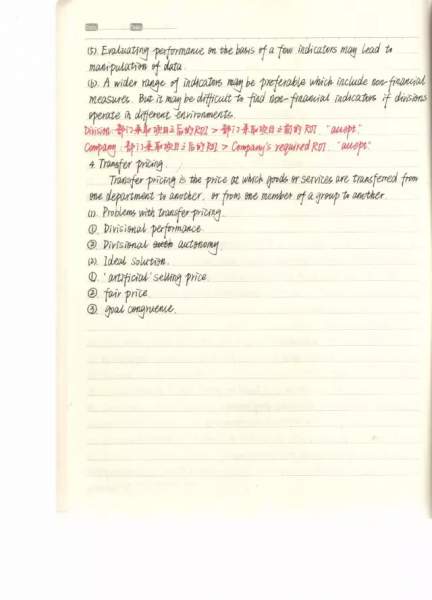 (5). Evaluating performance on the basis of a few indicators may lead to
manipulation of data.
(6). A wider range of indicators may be preferable which include non-financial
measures. But it may be difficult to find non-financial indicators if divisions
operate in different environments.
Division: 部门采取项目之后的ROI > 部门采取项目之前的ROI. "accept"
Company: 部门采取项目之后的ROI > Company's required ROI. "accept"
4. Transfer pricing.
Transfer pricing is the price at which goods or services are transferred from
one department to another, or from one member of a group to another.
(1). Problems with transfer pricing.
①. Divisional performance.
② Divisional autonomy.
(2). Ideal solution.
①. 'artificial' selling price.
②. fair price
③. goal congruence.